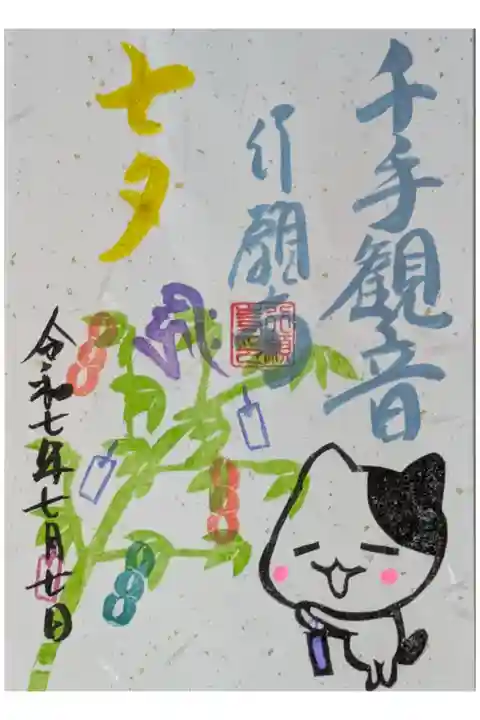 千手観音
行願寺
七夕
令和七年七月廿日